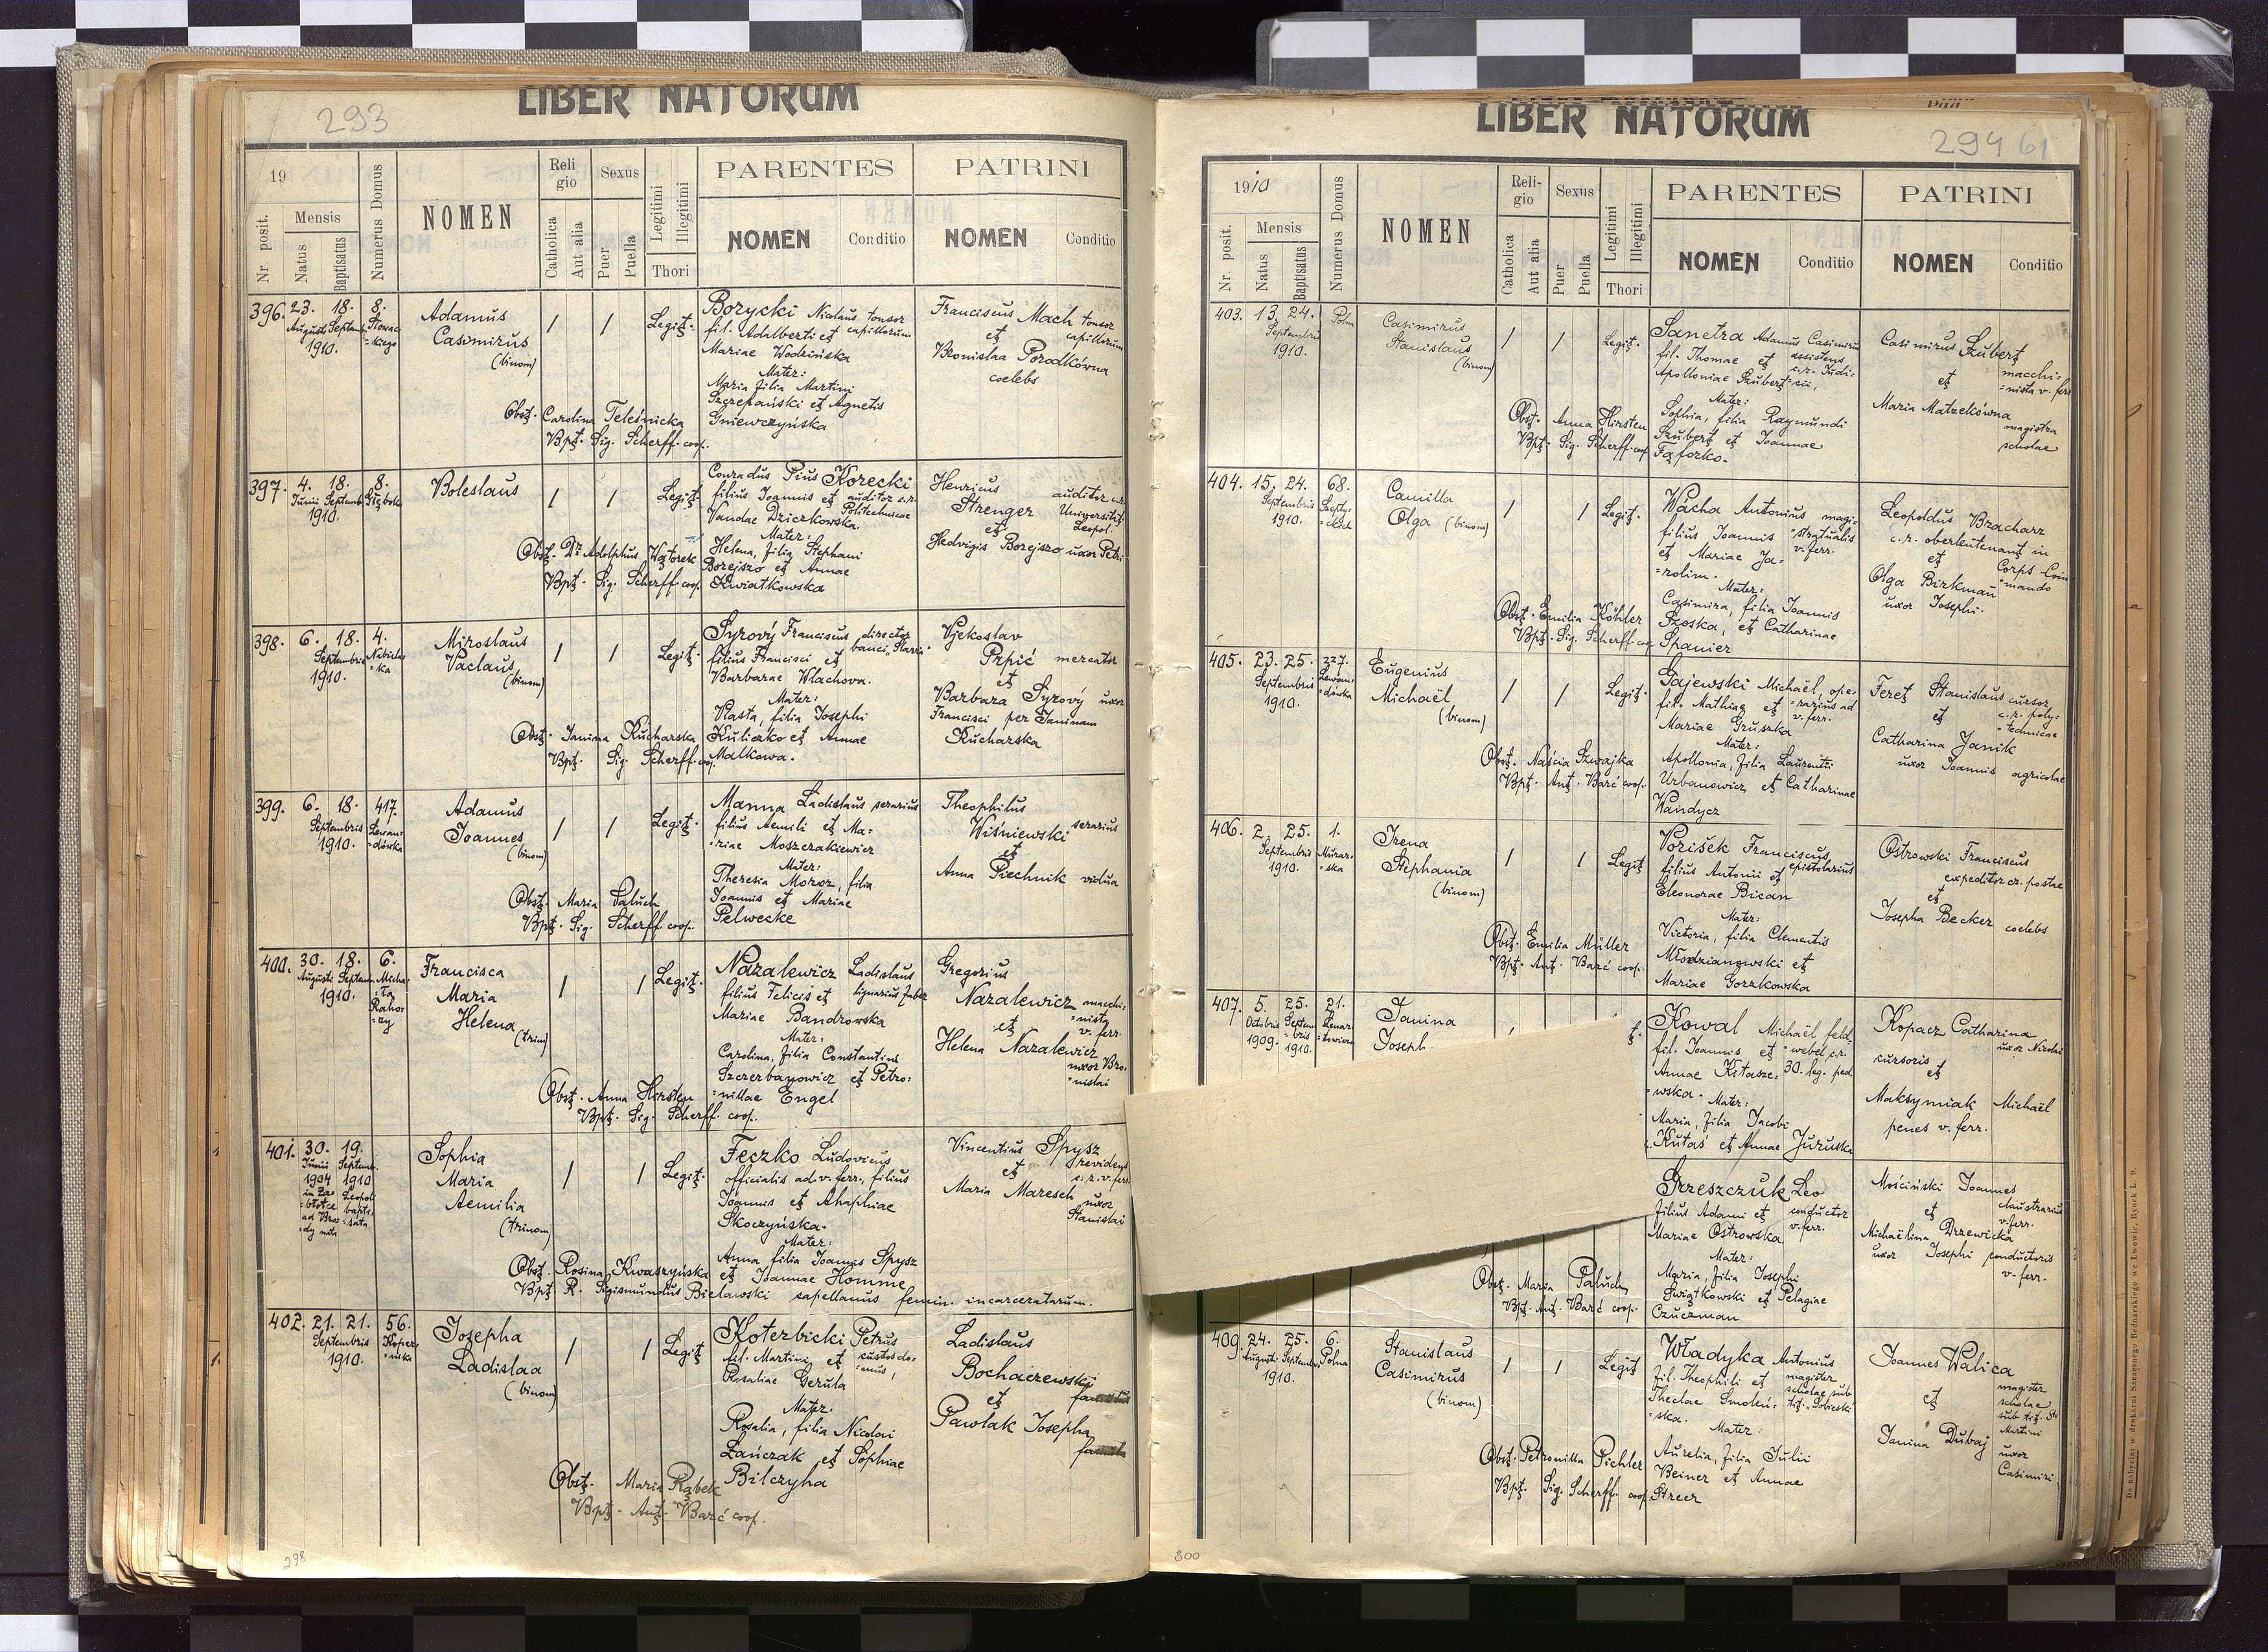 293
LIBER NATORUM
19
Nr. posit.
Mensis
Natus
Baptisatus
Numerus Domus
NOMEN
Religio
Catholica
Aut alia
Sexus
Puer
Puella
Legitimi
Illegitimi
Thori
PARENTES
NOMEN
Conditio
PATRINI
NOMEN
Conditio
396. 23. 18. 8.
August. Septem
1910.
Adamus
Casimirus
(binom)
Legit.
Borycki Nicolaus tonsor
fil. Adalberti et capillorum
Mariae Wodzińska
Mater:
Maria filia Martini
Szczepański et Agnetis
Gniewczyńska
Franciscus Mach tonsor
et capillorum
Bronislaa Porodkówna
coelebs
Obst. Carolina Teleśnicka
Bpt. Sig. Scherff coop.
397. 4. 18. 8.
Junii Septemb
1910.
Boleslaus
Legit.
Conradus Pius Korecki
filius Joannis et auditor c.r.
Vandae Dziczkowska. Politechnicae
Mater:
Helena, filia Stephani
Borejszo et Annae
Kwiatkowska
Henricus auditor c.r.
Strenger Universitat.
et Leopol.
Hedvigis Borejszo uxor Petri
Obst. Dr Adolphus Wątorek
Bpt. Sig. Scherff coop.
398. 6. 18. 4.
Septembris
1910.
Miroslaus
Vaclaus
(binom)
Legit.
Syrový Franciscus director
filius Francisci et banci "Slavia"
Barbarae Wlachova.
Mater:
Vlasta, filia Josephi
Kuliczko et Annae
Malkowa.
Vjekoslav
Prpić mercator
et
Barbara Syrový uxor
Francisci per Janinam
Kucharska
Obst. Janina Kucharska
Bpt. Sig. Scherff coop.
399. 6. 18. 417.
Septembris Lewan=
1910. =dówka
Adamus
Joannes
(binom)
Legit.
Manna Ladislaus serarius
filius Aemili et Ma=
=riae Moszczakiewicz
Mater:
Theresia Moroz, filia
Joannis et Mariae
Pelwecke
Theophilus
Wiśniewski serarius
et
Anna Piechnik vidua
Obst. Maria Paluch
Bpt. Sig. Scherff coop.
400. 30. 18. 6.
Augusti Septem Micha=
1910. =ła
Francisca
Maria
Helena
(trin)
Legit.
Nazalewicz Ladislaus
filius Felicis et lignarius faber
Mariae Bandrowska
Mater:
Carolina, filia Constantini
Szczerbanowicz et Petro=
=nillae Engel
Gregorius
Nazalewicz macchi=
et =nista
v. ferr.
Helena Nazalewicz
uxor Bro=
=nislai
Obst. Anna Hirsten
Bpt. Sig. Scherff coop.
401. 30. 19.
Junii Septem.
1904 1910
in Za= Leopoli
=błotce bapti=
ad Bro= =sata
=dy nata
Sophia
Maria
Aemilia
(trinom)
Legit.
Feczko Ludovicus
officialis ad v. ferr., filius
Joannis et Ahaphiae
Skoczyńska.
Mater:
Anna filia Joannis Spysz
et Joannae Homme
Vincentius Spysz
et revidens
c.r.v. ferr.
Maria Maresch uxor
Stanislai
Obst. Rosina Kwaszyńska
Bpt R. Sigismundus Bielawski capellanus femin. incarceratarum.
402. 21. 21. 56.
Septembris Koper=
1910. =nika
Josepha
Ladislaa
(binom)
Legit.
Koterbicki Petrus
fil. Martini et custos do=
Rosaliae Gerula =mus,
Mater.
Rosalia, filia Nicolai
Łańczak et Sophiae
Bilczyha
Ladislaus
Bochaczewski
et
Pawlak Josepha
Obst. Maria Rąbek
Bpt. Ant. Barć coop.
298
294 61
LIBER NATORUM
1910
Nr. posit.
Mensis
Natus
Baptisatus
Numerus Domus
NOMEN
Religio
Catholica
Aut alia
Sexus
Puer
Puella
Legitimi
Illegitimi
Thori
PARENTES
NOMEN
Conditio
PATRINI
NOMEN
Conditio
403. 13. 24. Polna
Septembris
1910.
Casimirus
Stanislaus
(binom)
Legit.
Sanetra Adamus Casimirus
fil. Thomae et assistens
Apolloniae Szubert c.r. Judi=
cii,
Mater:
Sophia, filia Raymundi
Szubert et Joannae
Casimirus Szubert
macchi=
et =nista v. ferr
Maria Matzekówna
magistra
scholae
Obst. Anna Hirsten
Bpt. Sig. Scherff coop
404. 15. 24. 68.
Septembris
1910.
Camilla
Olga (binom)
Legit.
Wácha Antonius magi=
filius Joannis =stratualis
et Mariae Ja= v. ferr.
=rolim.
Mater:
Casimira, filia Joannis
Szoska, et Catharinae
Spanier
Leopoldus Bracharz
c.r. oberleutenant in
et Corps Com=
=mando
Olga Birkman
uxor Josephi.
Obst. Emilia Köhler
Bpt. Sig. Scherff coop
405. 23. 25. 327.
Septembris Lewan=
1910. =dówka
Eugenius
Michaël
(binom)
Legit.
Gajewski Michaël, ope=
fil. Mathiae et =rarius ad
Mariae Gruszka v. ferr.
Mater:
Apollonia, filia Laurentii
Urbanowicz et Catharinae
Wandycz
Feret Stanislaus cursor
et c.r. poly=
=technicae
Catharina Janik
uxor Joannis agricolae
Obst. Naścia Szwajka
Bpt. Ant. Barć coop.
406. 2. 25. 1.
Septembris Murar=
1910. =ska
Irena
Stephania
(binom)
Legit
Voříšek Franciscus
filius Antonii et epistolarius
Eleonorae Bican
Mater:
Victoria, filia Clementis
Młodzianowski et
Mariae Gorzkowska
Ostrowski Franciscus
expeditor cr. postae
et
Josepha Becker coelebs
Obst. Emilia Müller
Bpt. Ant. Barć coop.
407. 5. 25. 21.
Octobris Septem
1909. =bris
1910.
Janina
Joseph
Kowal Michaël feld=
fil. Joannis et =webel c.r.
Annae Kitasze= 30. leg. ped.
=wska.
Mater:
Maria, filia Jacobi
Kutaś et Annae Juruska
Kopacz Catharina
uxor Nicolai
cursoris
et
Maksymiak Michaël
penes v. ferr.
Grzeszczuk Leo
filius Adami et conductor
Mariae Ostrowska v. ferr.
Mater:
Maria, filia Josephi
Świątkowski et Pelagiae
Czuczman
Mościński Joannes
et claustrarius
v. ferr.
Michaëlina Drzewicka
uxor Josephi conductoris
v. ferr.
Obst. Maria Paluch
Bpt. Ant. Barć coop.
409. 24. 25. 6.
Augusti Septembri Polna
1910.
Stanislaus
Casimirus
(binom)
Legit
Władyka Antonius
fil. Theophili et magister
Theclae Smoleń= scholae sub
=ska. tit. "Sobieski
Mater:
Aurelia, filia Julii
Beiner et Annae
Streer
Joannes Walica
magister
et scholae
sub tit. St.
Martini
Janina Dubaj uxor
Casimiri
Obst. Petronilla Pichler
Bpt. Sig. Scherff coop.
300
Do nabycia w drukarni Szczęsnego Bednarskiego we Lwowie, Rynek L. 9.